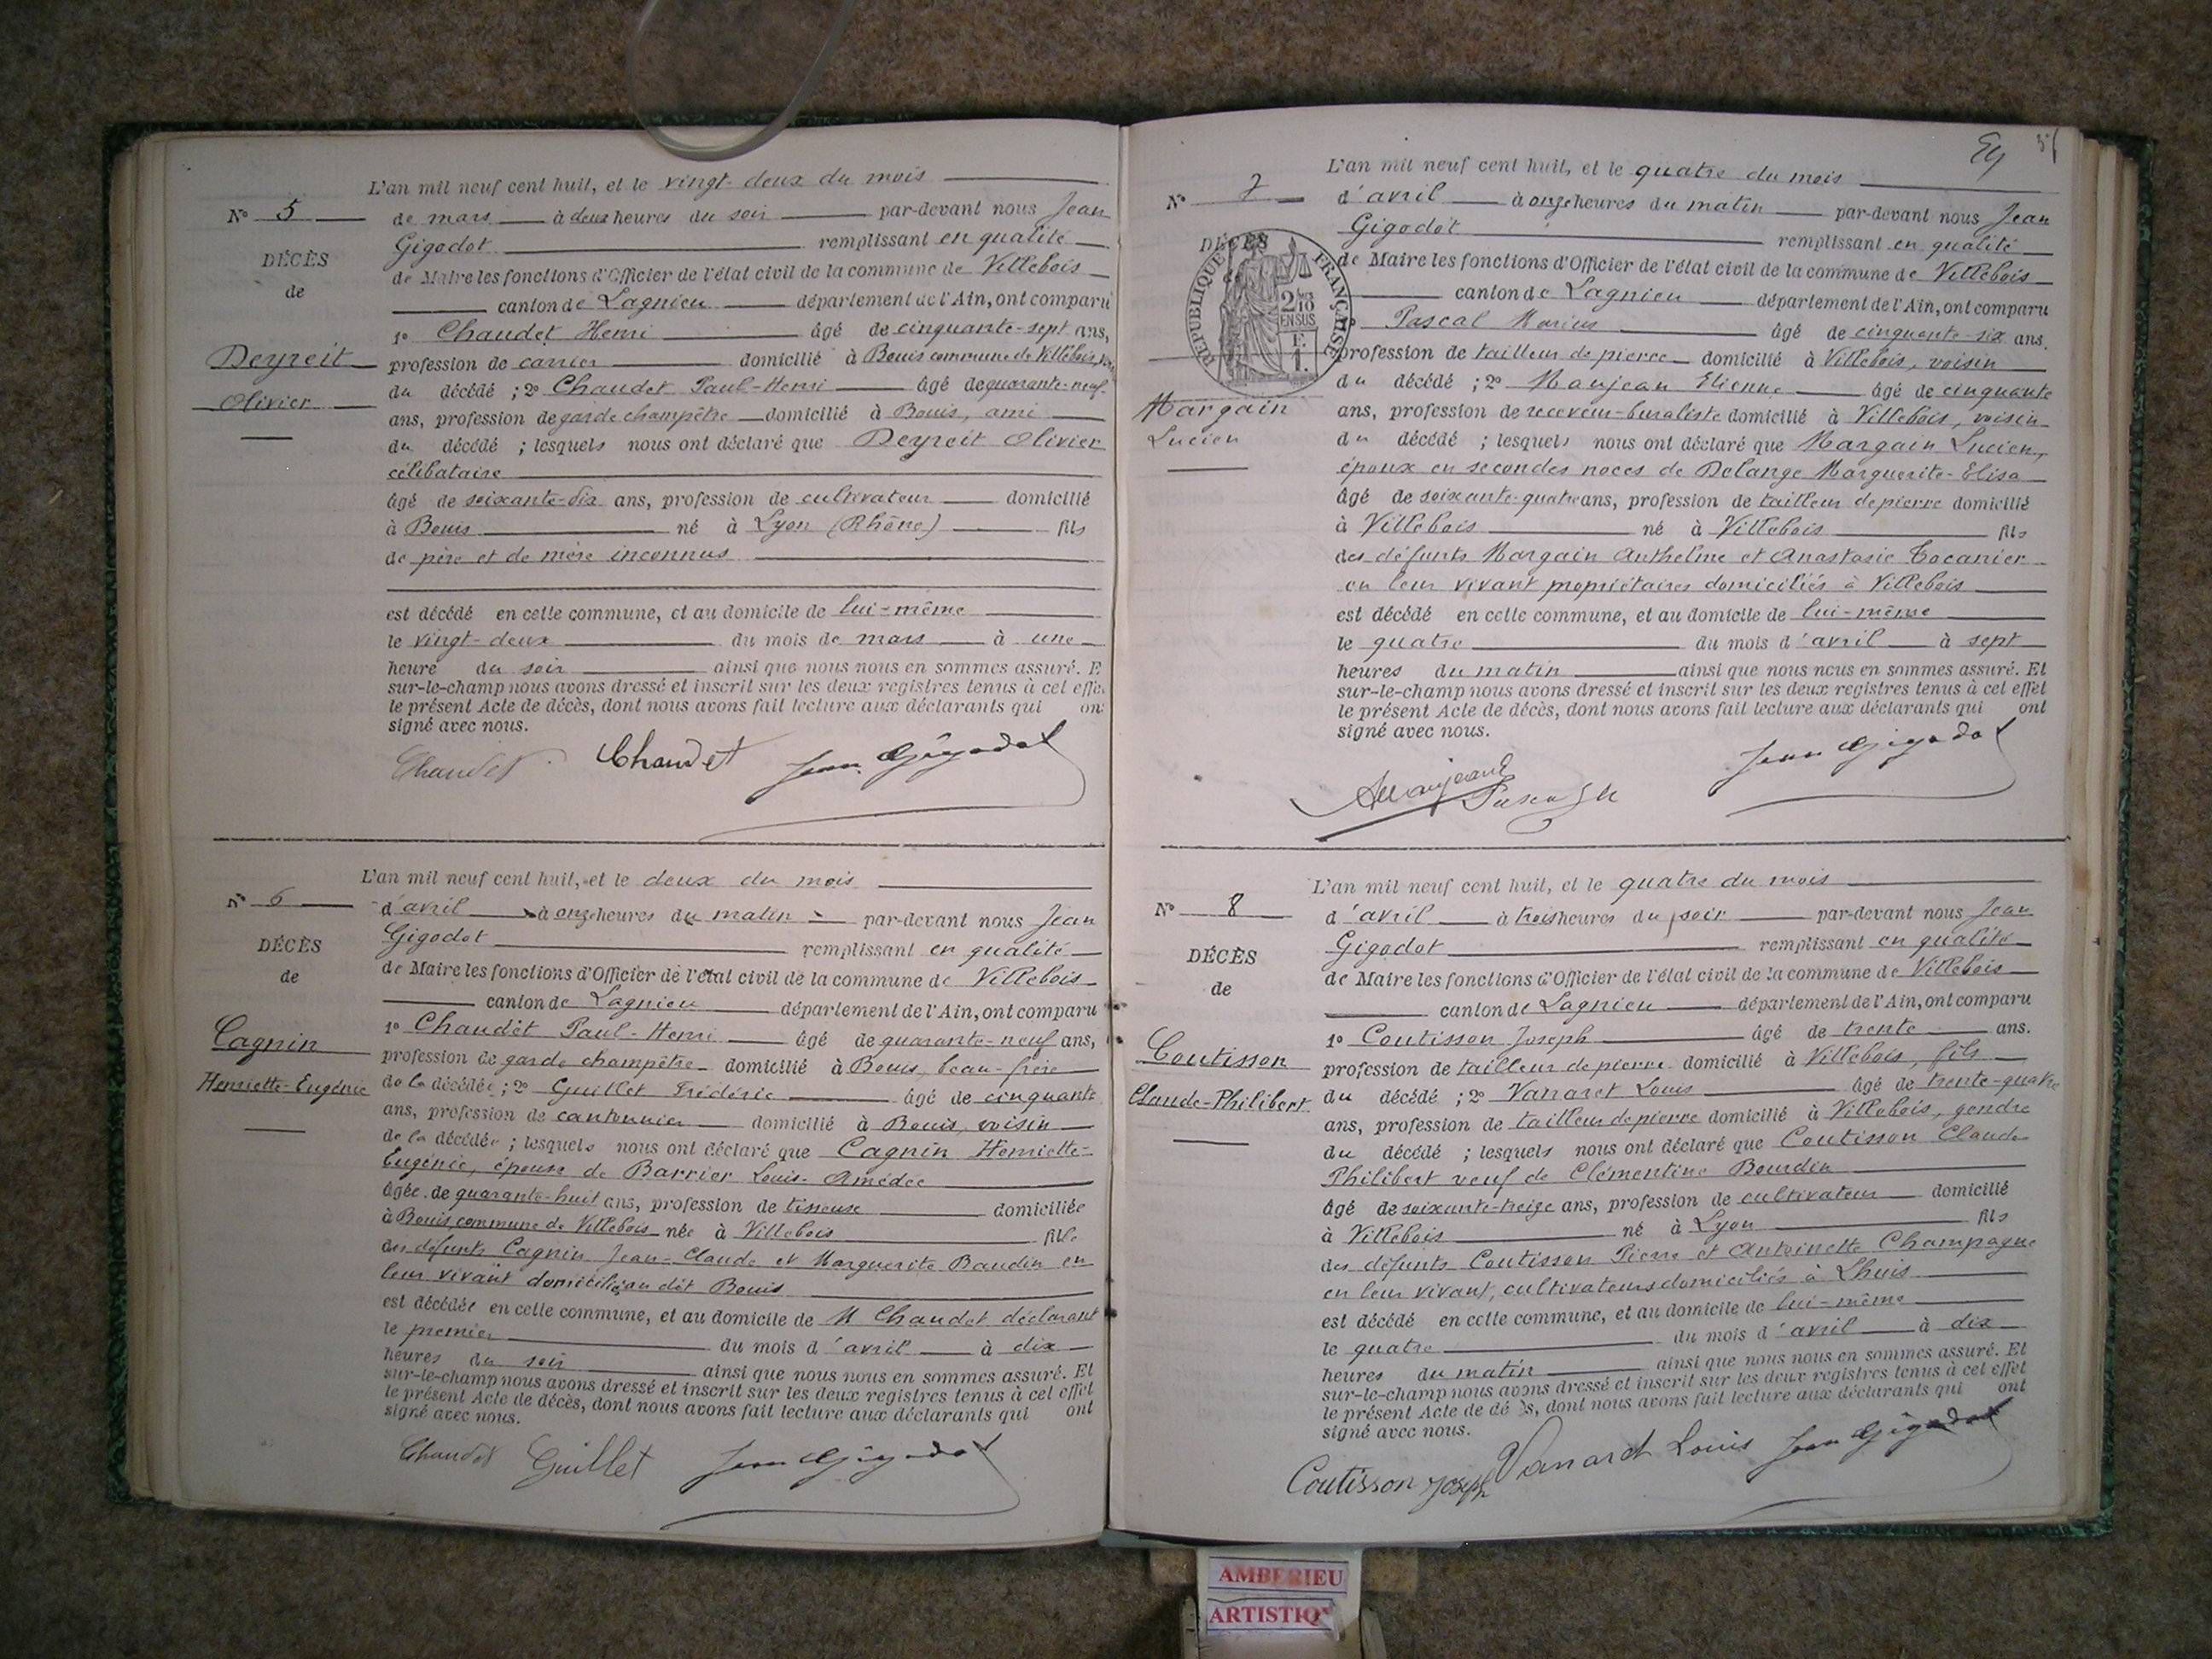 L'an mil neuf cent huit, et le vingt-deux du mois
N° 5
de mars à deux heures du soir par-devant nous Jean
Gigodot remplissant en qualité
DÉCÈS
de
de Maire les fonctions d'Officier de l'état civil de la commune de Villebois
canton de Lagnieu département de l'Ain, ont comparu
1° Chaudet Henri âgé de cinquante-sept ans,
Deyreit
Olivier
profession de carrier domicilié à Bouis commune de Villebois,
du décédé ; 2° Chaudet Paul-Henri âgé de quarante-neuf
ans, profession de garde champêtre domicilié à Bouis, ami
du décédé ; lesquels nous ont déclaré que Deyreit Olivier
célibataire
âgé de soixante-dix ans, profession de cultivateur domicilié
à Bouis né à Lyon (Rhône) fils
de père et de mère inconnus
est décédé en cette commune, et au domicile de lui-même
le vingt-deux du mois de mars à une
heure du soir ainsi que nous nous en sommes assuré. E
sur-le-champ nous avons dressé et inscrit sur les deux registres tenus à cet effe
le présent Acte de décès, dont nous avons fait lecture aux déclarants qui on
signé avec nous.
Chaudet Chaudet Jean Gigodot
L'an mil neuf cent huit, et le deux du mois
N° 6
d'avril à onze heures du matin par-devant nous Jean
Gigodot remplissant en qualité
DÉCÈS
de
de Maire les fonctions d'Officier de l'état civil de la commune de Villebois
canton de Lagnieu département de l'Ain, ont comparu
1° Chaudet Paul-Henri âgé de quarante-neuf ans,
Cagnin
Henriette-Eugénie
profession de garde champêtre domicilié à Bouis, beau-frère
de la décédée ; 2° Guillet Frédéric âgé de cinquante
ans, profession de cantonnier domicilié à Bouis, voisin
de la décédée ; lesquels nous ont déclaré que Cagnin Henriette-
Eugénie, épouse de Barrier Louis-Amédée
âgée de quarante-huit ans, profession de tisseuse domiciliée
à Bouis, commune de Villebois née à Villebois fille
des défunts Cagnin Jean-Claude et Marguerite Baudin en
leur vivant domiciliés au dit Bouis
est décédée en cette commune, et au domicile de M Chaudet déclarant
le premier du mois d'avril à dix
heures du soir ainsi que nous nous en sommes assuré. Et
sur-le-champ nous avons dressé et inscrit sur les deux registres tenus à cet effet
le présent Acte de décès, dont nous avons fait lecture aux déclarants qui ont
signé avec nous.
Chaudet Guillet Jean Gigodot
L'an mil neuf cent huit, et le quatre du mois
N° 7
d'avril à onze heures du matin par-devant nous Jean
Gigodot remplissant en qualité
DÉCÈS
RÉPUBLIQUE FRANÇAISE
2/10 EN SUS
F. 1.
de Maire les fonctions d'Officier de l'état civil de la commune de Villebois
canton de Lagnieu département de l'Ain, ont comparu
Pascal Marius âgé de cinquante-six ans.
profession de tailleur de pierre domicilié à Villebois, voisin
Margain
Lucien
du décédé ; 2° Maujean Etienne âgé de cinquante
ans, profession de receveur-buraliste domicilié à Villebois, voisin
du décédé ; lesquels nous ont déclaré que Margain Lucien,
époux en secondes noces de Delange Marguerite-Elisa
âgé de soixante-quatre ans, profession de tailleur de pierre domicilié
à Villebois né à Villebois fils
des défunts Margain Anthelme et Anastasie Tocanier
en leur vivant propriétaires domiciliés à Villebois
est décédé en cette commune, et au domicile de lui-même
le quatre du mois d'avril à sept
heures du matin ainsi que nous nous en sommes assuré. Et
sur-le-champ nous avons dressé et inscrit sur les deux registres tenus à cet effet
le présent Acte de décès, dont nous avons fait lecture aux déclarants qui ont
signé avec nous.
Maujean Pascal Jean Gigodot
L'an mil neuf cent huit, et le quatre du mois
N° 8
d'avril à trois heures du soir par-devant nous Jean
Gigodot remplissant en qualité
DÉCÈS
de
de Maire les fonctions d'Officier de l'état civil de la commune de Villebois
canton de Lagnieu département de l'Ain, ont comparu
1° Coutisson Joseph âgé de trente ans.
Coutisson
Claude-Philibert
profession de tailleur de pierre domicilié à Villebois, fils
du décédé ; 2° Vanaret Louis âgé de trente-quatre
ans, profession de tailleur de pierre domicilié à Villebois, gendre
du décédé ; lesquels nous ont déclaré que Coutisson Claude
Philibert veuf de Clémentine Bourdin
âgé de soixante-treize ans, profession de cultivateur domicilié
à Villebois né à Lyon fils
des défunts Coutisson Pierre et Antoinette Champagne
en leur vivant, cultivateurs domiciliés à Lhuis
est décédé en cette commune, et au domicile de lui-même
le quatre du mois d'avril à dix
heures du matin ainsi que nous nous en sommes assuré. Et
sur-le-champ nous avons dressé et inscrit sur les deux registres tenus à cet effet
le présent Acte de décès, dont nous avons fait lecture aux déclarants qui ont
signé avec nous.
Coutisson Joseph Vanaret Louis Jean Gigodot
AMBERIEU
ARTISTIQ